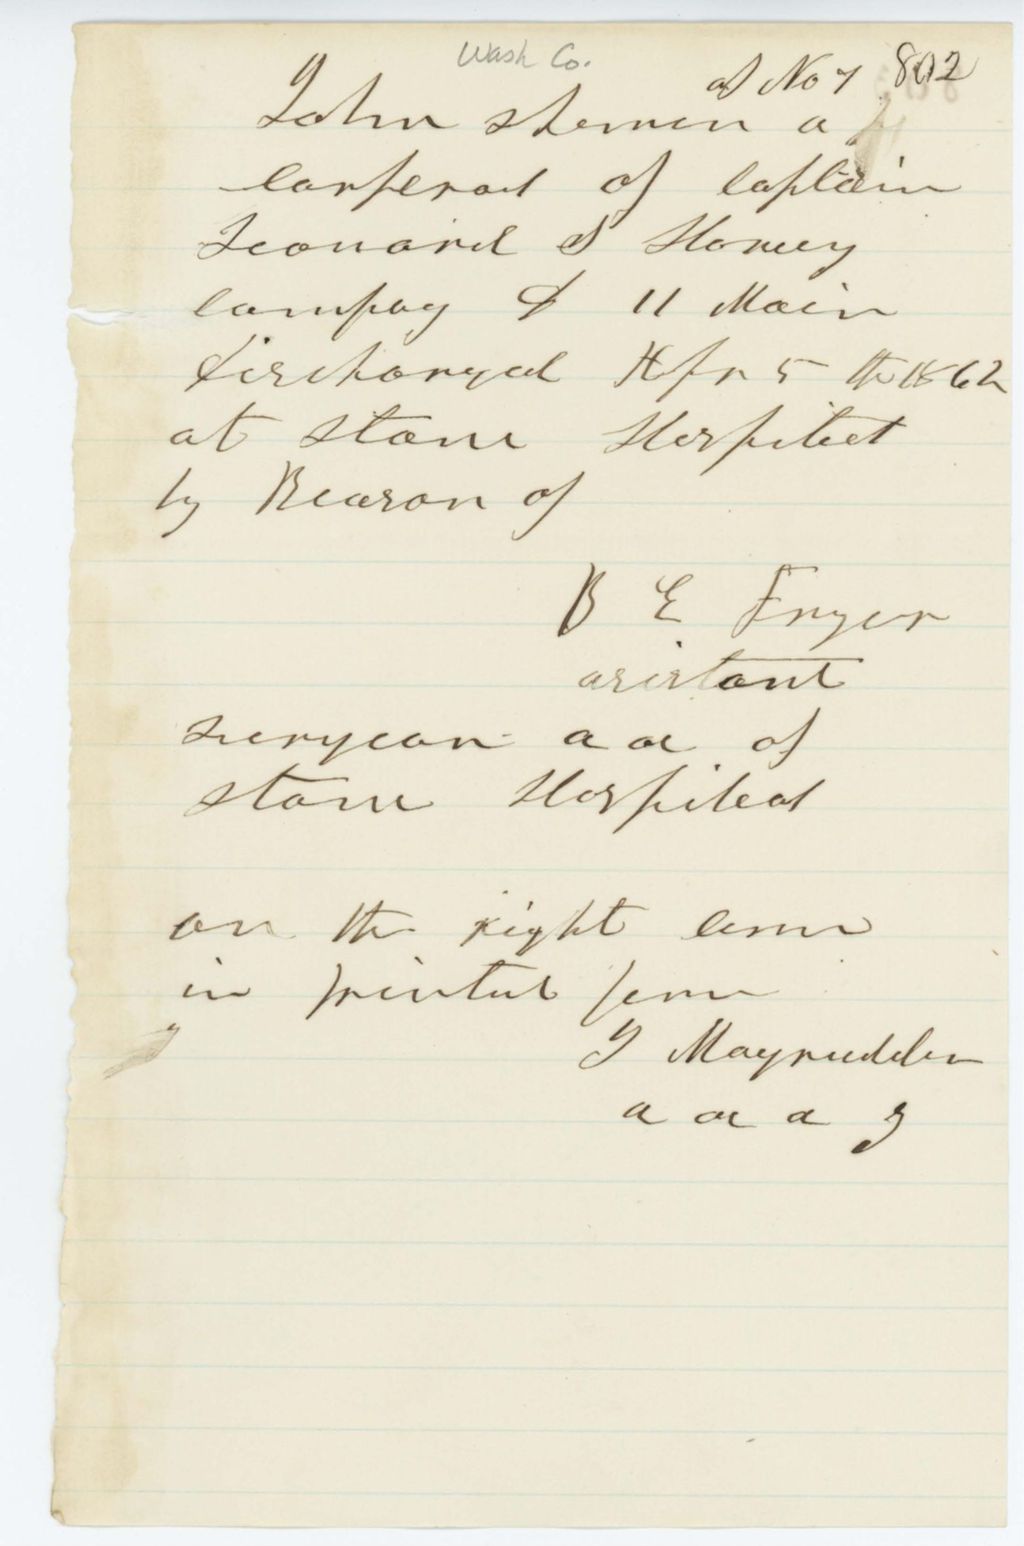 Wash Co.
of No 7 802
John shemen a
Corperal of Captain
Leonard S Harvey
Compay D 11 Main
discharged Apr 5 th 1862
at Stone Hospital
by Reason of
B E Fryer
asistant
Surgeon a a of
stone Hospital
on the right
in printed
J Magrudder
a a a g